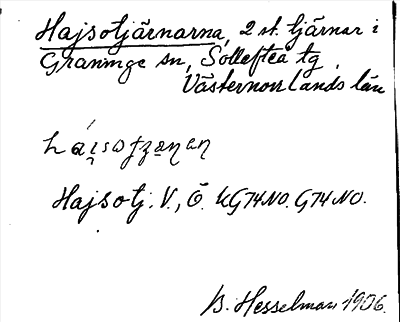 Hajsotjärnarna, 2 st. tjärnar i
Graninge sn, Sollefteå tg
Västernorrlands län
Hajsotj. V., Ö. KG74NO. G74NO.
B. Hesselman 1906.